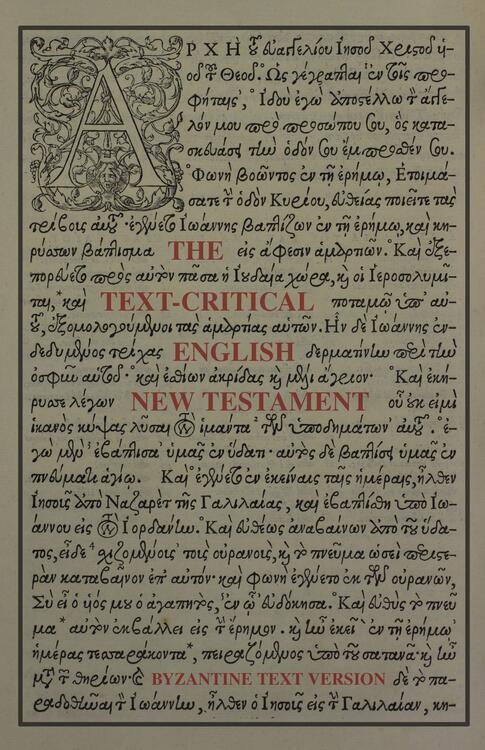 ΑΡΧΗ τοῦ εὐαγγελίου Ἰησοῦ Χριστοῦ ὑ-
οῦ τοῦ Θεοῦ. Ὡς γέγραπται ἐν τοῖς προ-
φήταις, Ἰδοὺ ἐγὼ ἀποστέλλω τὸν ἄγγε-
λόν μου πρὸ προσώπου σου, ὃς κατα-
σκευάσει τὴν ὁδόν σου ἔμπροσθέν σου.
Φωνὴ βοῶντος ἐν τῇ ἐρήμῳ, Ἑτοιμά-
σατε τὴν ὁδὸν Κυρίου, εὐθείας ποιεῖτε τὰς
τρίβους αὐτοῦ. ἐγένετο Ἰωάννης βαπτίζων ἐν τῇ ἐρήμῳ, καὶ κη-
ρύσσων βάπτισμα THE εἰς ἄφεσιν ἁμαρτιῶν. Καὶ ἐξε-
πορεύετο πρὸς αὐτὸν πᾶσα ἡ Ἰουδαία χώρα, καὶ οἱ Ἱεροσολυμῖ-
ται, καὶ TEXT-CRITICAL ποταμῷ ὑπ' αὐ-
τοῦ, ἐξομολογούμενοι τὰς ἁμαρτίας αὐτῶν. Ἦν δὲ Ἰωάννης ἐν-
δεδυμένος τρίχας ENGLISH δερματίνην περὶ τὴν
ὀσφὺν αὐτοῦ· καὶ ἐσθίων ἀκρίδας καὶ μέλι ἄγριον· Καὶ ἐκή-
ρυσσε λέγων NEW TESTAMENT οὗ οὐκ εἰμὶ
ἱκανὸς κύψας λῦσαι τὸν ἱμάντα τῶν ὑποδημάτων αὐτοῦ. ἐ-
γὼ μὲν ἐβάπτισα ὑμᾶς ἐν ὕδατι· αὐτὸς δὲ βαπτίσει ὑμᾶς ἐν
πνεύματι ἁγίῳ. Καὶ ἐγένετο ἐν ἐκείναις ταῖς ἡμέραις, ἦλθεν
Ἰησοῦς ἀπὸ Ναζαρὲτ τῆς Γαλιλαίας, καὶ ἐβαπτίσθη ὑπὸ Ἰω-
άννου εἰς τὸν Ἰορδάνην. Καὶ εὐθέως ἀναβαίνων ἀπὸ τοῦ ὕδα-
τος, εἶδε σχιζομένους τοὺς οὐρανοὺς, καὶ τὸ πνεῦμα ὡσεὶ περιστε-
ρὰν καταβαῖνον ἐπ' αὐτόν· καὶ φωνὴ ἐγένετο ἐκ τῶν οὐρανῶν,
Σὺ εἶ ὁ υἱός μου ὁ ἀγαπητὸς, ἐν ᾧ εὐδόκησα. Καὶ εὐθὺς τὸ πνεῦ
μα αὐτὸν ἐκβάλλει εἰς τὴν ἔρημον. καὶ ἦν ἐκεῖ ἐν τῇ ἐρήμῳ
ἡμέρας τεσσαράκοντα, πειραζόμενος ὑπὸ τοῦ σατανᾶ· καὶ ἦν
μετὰ τῶν θηρίων· BYZANTINE TEXT VERSION δὲ τὸ πα-
ραδοθῆναι τὸν Ἰωάννην, ἦλθεν ὁ Ἰησοῦς εἰς τὴν Γαλιλαίαν, κη-